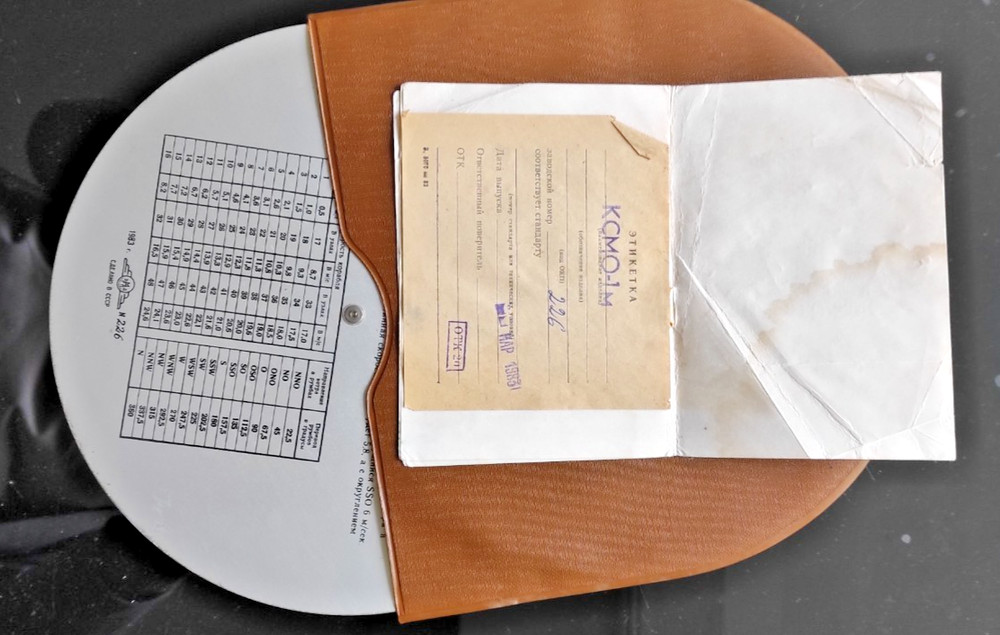 ЭТИКЕТКА
КСМО-1М
(обозначение изделия)
(код ОКП)
заводской номер 226
соответствует стандарту
Дата выпуска МАР 1983
Ответственный поверитель
ОТК ОТК 2п
рость корабля
В узлах В м/с В узлах В м/с Направление ветра в румбах Перевод румбов в градусы
0,5 17 8,7 33 17,0 NNO 22,5
2 1,0 18 9,3 34 17,5 NO 45
3 1,5 19 9,8 35 18,0 ONO 67,5
4 2,1 20 10,3 36 18,5 O 90
5 2,6 21 10,8 37 19,0 OSO 112,5
6 3,1 22 11,3 38 19,6 SO 135
7 3,6 23 11,8 39 20,0 SSO 157,5
8 4,1 24 12,3 40 20,6 S 180
9 4,6 25 12,9 41 21,0 SSW 202,5
10 5,1 26 13,3 42 21,6 SW 225
11 5,7 27 13,9 43 22,1 WSW 247,5
12 6,2 28 14,4 44 22,6 W 270
13 6,7 29 14,9 45 23,0 WNW 292,5
14 7,2 30 15,4 46 23,6 NW 315
15 7,7 31 15,9 47 24,1 NNW 337,5
16 8,2 32 16,5 48 24,6 N 360
1983 г. N 226
СДЕЛАНО В СССР
SSO 6 м/сек
а с округлением